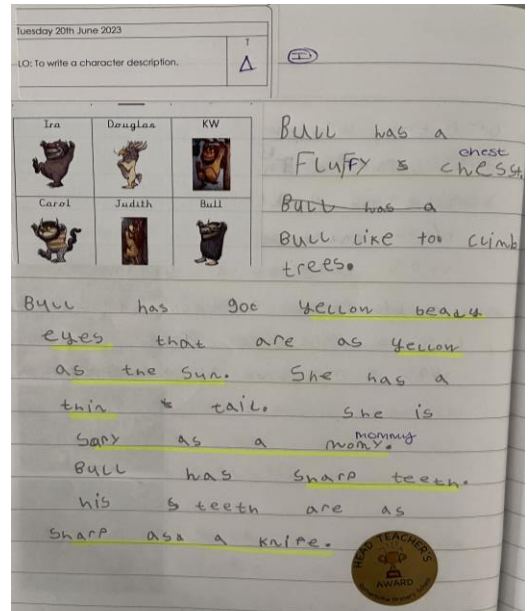 Tuesday 20th June 2023
LO: To write a character description.
T
Δ
I
Ira Douglas KW
Carol Judith Bull
Bull has a
Fluffy chest chesst.
Bull has a
Bull like too climb
trees.
Bull has got yellow beady
eyes that are as yellow
as the sun. She has a
thin tail. She is
Sary as a mommy momy.
Bull has sharp teeth.
his s teeth are as
sharp asa a knife.
HEAD TEACHER'S
AWARD